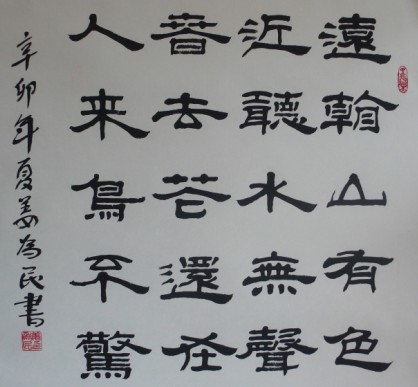 遠翰山有色
近聽水無聲
春去花還在
人来鳥不驚
辛卯年夏姜為民書